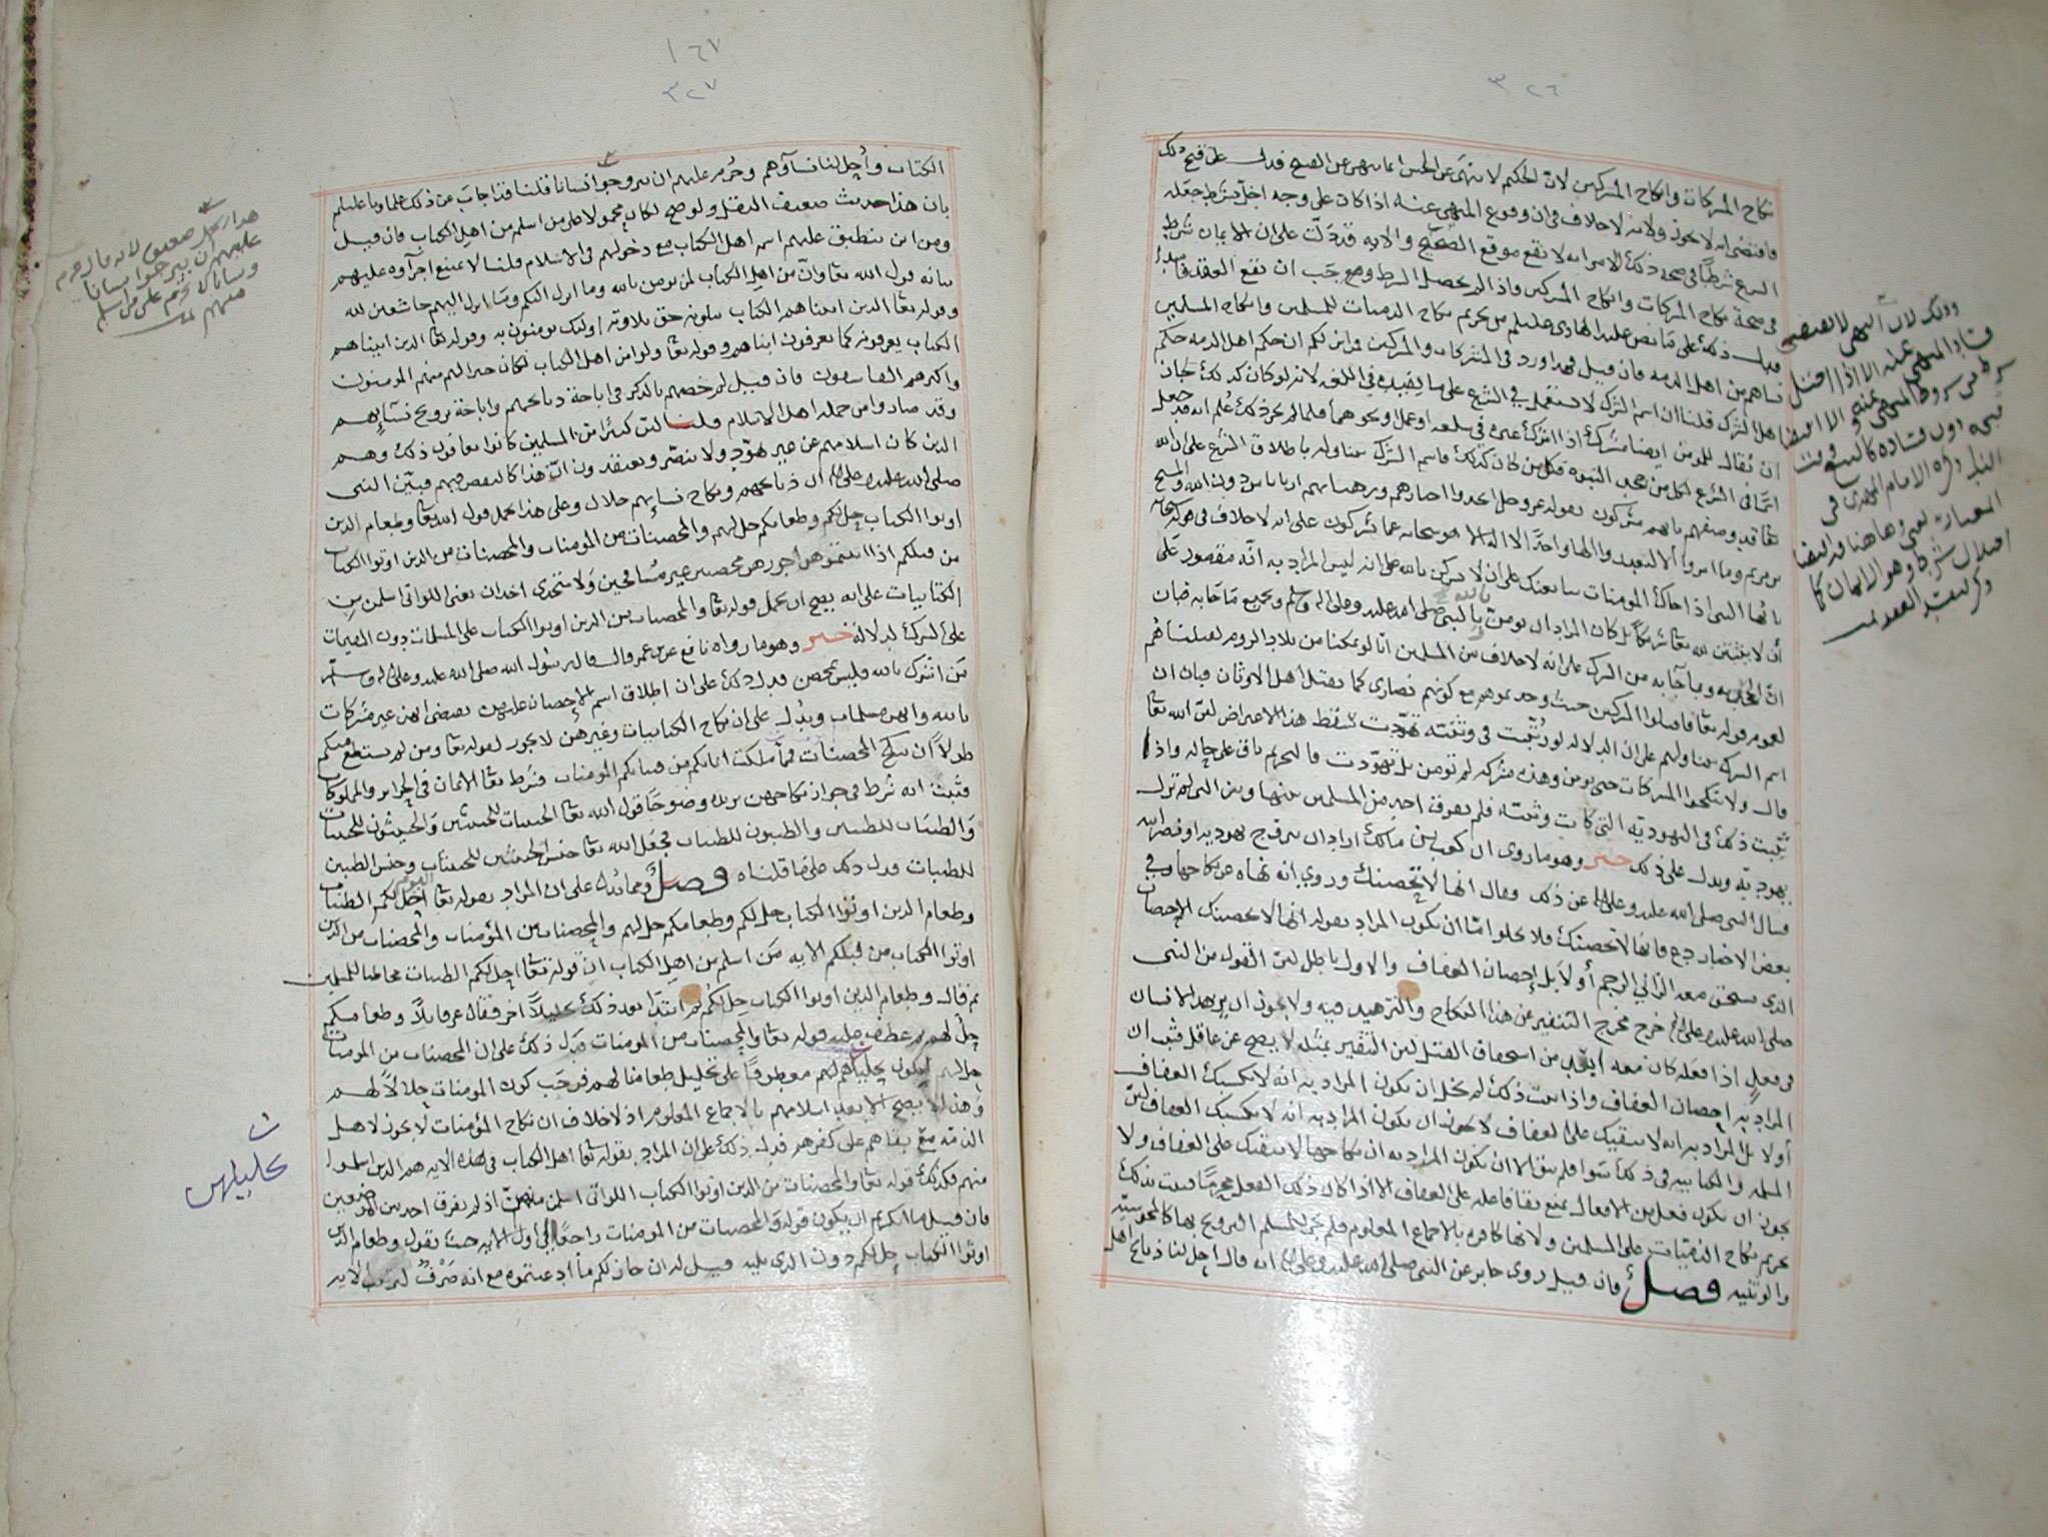 ٣٢٦
نكاح المشركات وانكاح المشركين لان الحكيم لا ينهى عن الحسن انما ينهى عن القبيح فدل على قبح ذلك
فاقتضى انه لا يجوز ولانه لا خلاف في ان وقوع المنهي عنه اذا كان على وجه اخل بشرط جعله
الشرع شرطا في صحة ذلك الامر انه لا يقع موقع الصحيح والايه قد دلت على ان الايمان شرط
في صحة نكاح المشركات وانكاح المشركين فاذا لم يحصل الشرط وجب ان يقع العقد فاسدا
فدل ذلك على ما نص عليه الهادي عليلم من تحريم نكاح الذميات للمسلمين وانكاح المسلمين
نساهم من اهل الذمه فان قيل فهذا ورد في المشركات والمشركين فمن اين لكم ان حكم اهل الذمه حكم
اهل الشرك قلنا ان اسم الشرك لا يستعمل في الشرع على ما يفيده في اللغه لانه لو كان كذلك لجاز
ان يقال للمومن ايضا مشرك اذا اشرك غيره في سلعه او عمل او نحوهما فلما لم يجز ذلك علم انه قد جعل
اسما في الشرع لكل من جحد النبوه فكل من كان كذلك فاسم الشرك يتناوله باطلاق الشرع على ان الله
تعا قد وصفهم بانهم مشركون بقوله عز وجل اتخذوا احبارهم ورهبانهم اربابا من دون الله والمسيح
بن مريم وما امروا الا ليعبدوا الها واحدا لا اله الا هو سبحانه عما يشركون على انه لا خلاف في قوله تعا
يا ايها النبي اذا جاك المومنات يبايعنك على ان لا يشركن بالله على انه ليس المراد به انه مقصور على
ان لا يثبتن لله تعا شريكا بل كان المراد ان يومن بالله وبالنبي صلى الله عليه وعلى اله وسلم وبجميع ما جا به فبان
ان الجحد به وبما جا به من الشرك على انه لا خلاف بين المسلمين انا لو تمكنا من بلاد الروم لقتلناهم
لعموم قوله تعا فاقتلوا المشركين حيث وجدتموهم مع كونهم نصارى كما يقتل اهل الاوثان فبان ان
اسم الشرك يتناولهم على ان الدلاله لو ثبتت في وثنيه تهودت سقط هذا الاعتراض لان الله تعا
قال ولا تنكحوا المشركات حتى يومن وهذه مشركه لم تومن بل تهودت فالتحريم باق على حاله واذا
ثبت ذلك في اليهوديه التي كانت وثنيه فلم يفرق احد من المسلمين بينها وبين التي لم تزل
يهوديه ويدل على ذلك خبر وهو ما روي ان كعب بن مالك اراد ان يتزوج يهوديه او نصرانيه
فسال النبي صلى الله عليه وعلى اله عن ذلك فقال انها لا تحصنك وروي انه نهاه عن نكاحها وفي
بعض الاخبار دع فانها لا تحصنك فلا يخلوا اما ان يكون المراد بقوله انها لا تحصنك الاحصان
الذي يستحق معه الزاني الرجم أولا بل إحصان العفاف والاول باطل لان القول من النبي
صلى الله عليه وعلى اله خرج مخرج التنفير عن هذا النكاح والتزهيد فيه ولا يجوز ان يزهد الانسان
في فعل اذا فعله كان معه ابعد من استحقاق القتل لان التنفير بمثله لا يصح عن عاقل فثبت ان
المراد به إحصان العفاف واذا ثبت ذلك لم يخل ان يكون المراد به انه لا يكسبك العفاف
أولا بل المراد به انه لا يبقيك على العفاف لا يجوز ان يكون المراد به انه لا يكسبك العفاف لان
المسلمه والكتابيه في ذلك سوا فلم يبق الا ان يكون المراد به ان نكاحها لا يبقيك على العفاف ولا
يجوز ان يكون فعل من الافعال يمنع بقا فاعله على العفاف الا اذا كان ذلك الفعل محرما فثبت بذلك
تحريم نكاح الذميات على المسلمين ولانها كافره بالاجماع المعلوم فلم يجز للمسلم التزويج بها كالمجوسيه
والوثنيه فصل فان قيل روى جابر عن النبي صلى الله عليه وعلى اله انه قال احل لنا ذبائح اهل
وذلك لان النهي لا يقتضي
فساد المنهي عنه الا اذا اختل
شرط من شروط المنهي عنه
الامام المهدي في
وهو الايمان
١٦٧
٣٢٧
الكتاب وأحل لنا نساؤهم وحرم عليهم ان يتزوجوا نسانا قلنا قد اجاب عن ذلك علماونا عليلم
بان هذا حديث ضعيف النقل ولو صح لكان محمولا على من اسلم من اهل الكتاب فان قيل
ومن اين ينطبق عليهم اسم اهل الكتاب مع دخولهم في الاسلام قلنا لا يمتنع اجراؤه عليهم
بيانه قول الله تعا وان من اهل الكتاب لمن يومن بالله وما انزل اليكم وما انزل اليهم خاشعين لله
وقوله تعا الذين اتيناهم الكتاب يتلونه حق تلاوته اولئك يومنون به وقوله تعا الذين اتيناهم
الكتاب يعرفونه كما يعرفون ابناهم وقوله تعا ولو امن اهل الكتاب لكان خيرا لهم منهم المومنون
واكثرهم الفاسقون فان قيل لم خصهم بالذكر في اباحة ذبائحهم واباحة تزويج نسائهم
وقد صاروا من جملة اهل الاسلام قلنا لان كثيرا من المسلمين كانوا يعافون ذلك وهم
الذين كان اسلامهم عن غير تهود ولا تنصر ويعتقدون ان هذا كالنقص فيهم فبين النبي
صلى الله عليه وعلى اله ان ذبائحهم ونكاح نسائهم حلال وعلى هذا يحمل قوله الله تعا وطعام الذين
اوتوا الكتاب حل لكم وطعامكم حل لهم والمحصنات من المومنات والمحصنات من الذين اوتوا الكتاب
من قبلكم اذا اتيتموهن أجورهن محصنين غير مسافحين ولا متخذى اخدان يعني اللواتي اسلمن من
الكتابيات على انه يصح ان يحمل قوله تعا والمحصنات من الذين اوتوا الكتاب على المسلمات دون المقيمات
على الشرك لدلالة خبر وهو ما رواه نافع عن بن عمر قال قال رسول الله صلى الله عليه وعلى اله وسلم
من اشرك بالله فليس بمحصن فدل ذلك على ان اطلاق اسم الإحصان عليهن يقتضي انهن غير مشركات
بالله وانهن مسلمات ويدل على ان نكاح الكتابيات وغيرهن لا يجوز لقوله تعا ومن لم يستطع منكم
طولا ان ينكح المحصنات فمما ملكت ايمانكم من فتياتكم المومنات فشرط تعا الايمان في الحرائر والمملوكات
فثبت انه شرط في جواز نكاحهن يزيده وضوحا قول الله تعا الخبيثات للخبيثين والخبيثون للخبيثات
والطيبات للطيبين والطيبون للطيبات فجعل الله تعا جنس الخبيثين للخبيثات وجنس الطيبين
للطيبات فدل ذلك على ما قلناه فصل ومما يدل على ان المراد بقوله تعا اليوم أحل لكم الطيبات
وطعام الذين اوتوا الكتاب حل لكم وطعامكم حل لهم والمحصنات من المؤمنات والمحصنات من الذين
اوتوا الكتاب من قبلكم الايه من اسلم من اهل الكتاب ان قوله تعا احل لكم الطيبات مخاطبا للمسلمين
ثم قال وطعام الذين اوتوا الكتاب حل لكم ثم ابتدا بعد ذلك تحليلا آخر فقال عز قايلا وطعامكم
حل لهم ثم عطف عليه قوله تعا والمحصنات من المومنات فدل ذلك على ان المحصنات من المومنات
حل لهم ليكون تحليلهن لهم معطوفا على تحليل طعامنا لهم فوجب كون المومنات حلالا لهم
وهذا لا يصح الا بعد اسلامهم بالاجماع المعلوم اذ لا خلاف ان نكاح المؤمنات لا يجوز لاهل
الذمه مع بقاهم على كفرهم فدل ذلك على ان المراد بقوله تعا اهل الكتاب في هذه الايه هم الذين اسلموا
منهم فكذلك قوله تعا والمحصنات من الذين اوتوا الكتاب اللواتي اسلمن منهن اذ لم يفرق احد بين الموضعين
فان قيل ما انكرتم ان يكون قوله والمحصنات من المومنات راجعا إلى أول الايه حيث يقول وطعام الذين
اوتوا الكتاب حل لكم دون الذي يليه قيل له ان جاز لكم ما ادعيتموه مع انه صرف لترتيب الايه
لانه قال حرم
عليهم ان يتزوجوا نسانا
ونسانا تحرم على من اسلم
منهم
ن
تحليلهن